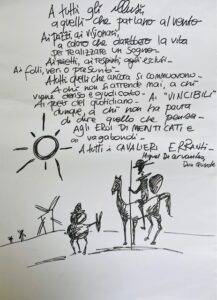 A tutti gli illusi,
a quelli che parlano al vento
Ai pazzi, ai visionari,
a coloro che darebbero la vita
per realizzare un sogno.
Ai reietti, ai respinti, agli esclusi.
Ai folli, veri o presunti.
A tutti quelli che ancora si commuovono.
A chi non si arrende mai, a chi
viene deriso e giudicato.
Ai "VINCIBILI"
Ai poeti del quotidiano.
dunque, a chi non ha paura
di dire quello che pensa.
AGLI EROI DIMENTICATI e
ai vagabondi.
A tutti i CAVALIERI ERRANTI.
Miguel De Cervantes,
Don Quixote